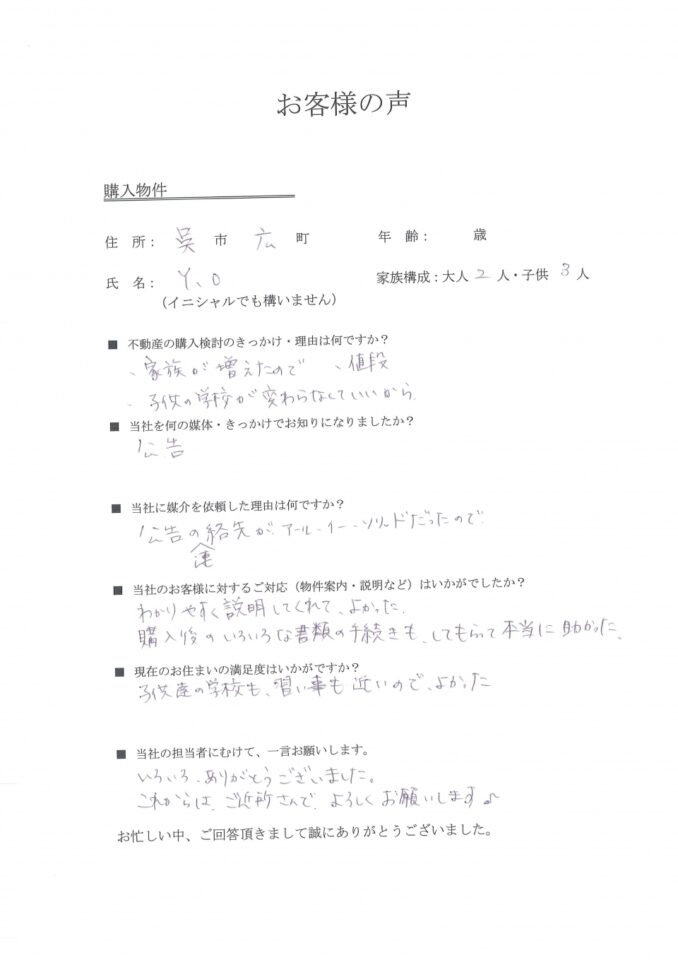 お客様の声
購入物件
住 所: 呉 市 広 町 年 齢: 歳
氏 名: Y、O 家族構成:大人 2 人・子供 3 人
(イニシャルでも構いません)
■ 不動産の購入検討のきっかけ・理由は何ですか?
、家族が増えたので 、値段
、子供の学校が変わらなくていいから、
■ 当社を何の媒体・きっかけでお知りになりましたか?
公告
■ 当社に媒介を依頼した理由は何ですか?
公告の連絡先が、アール・イー・ソリッドだったので
■ 当社のお客様に対するご対応(物件案内・説明など)はいかがでしたか?
わかりやすく説明してくれて、よかった、
購入後のいろいろな書類の手続きも、してもらって本当に助かった、
■ 現在のお住まいの満足度はいかがですか?
子供達の学校も、習い事も近いので、よかった
■ 当社の担当者にむけて、一言お願いします。
いろいろ、ありがとうございました。
これからは、ご近所さんで、よろしくお願いします♪
お忙しい中、ご回答頂きまして誠にありがとうございました。